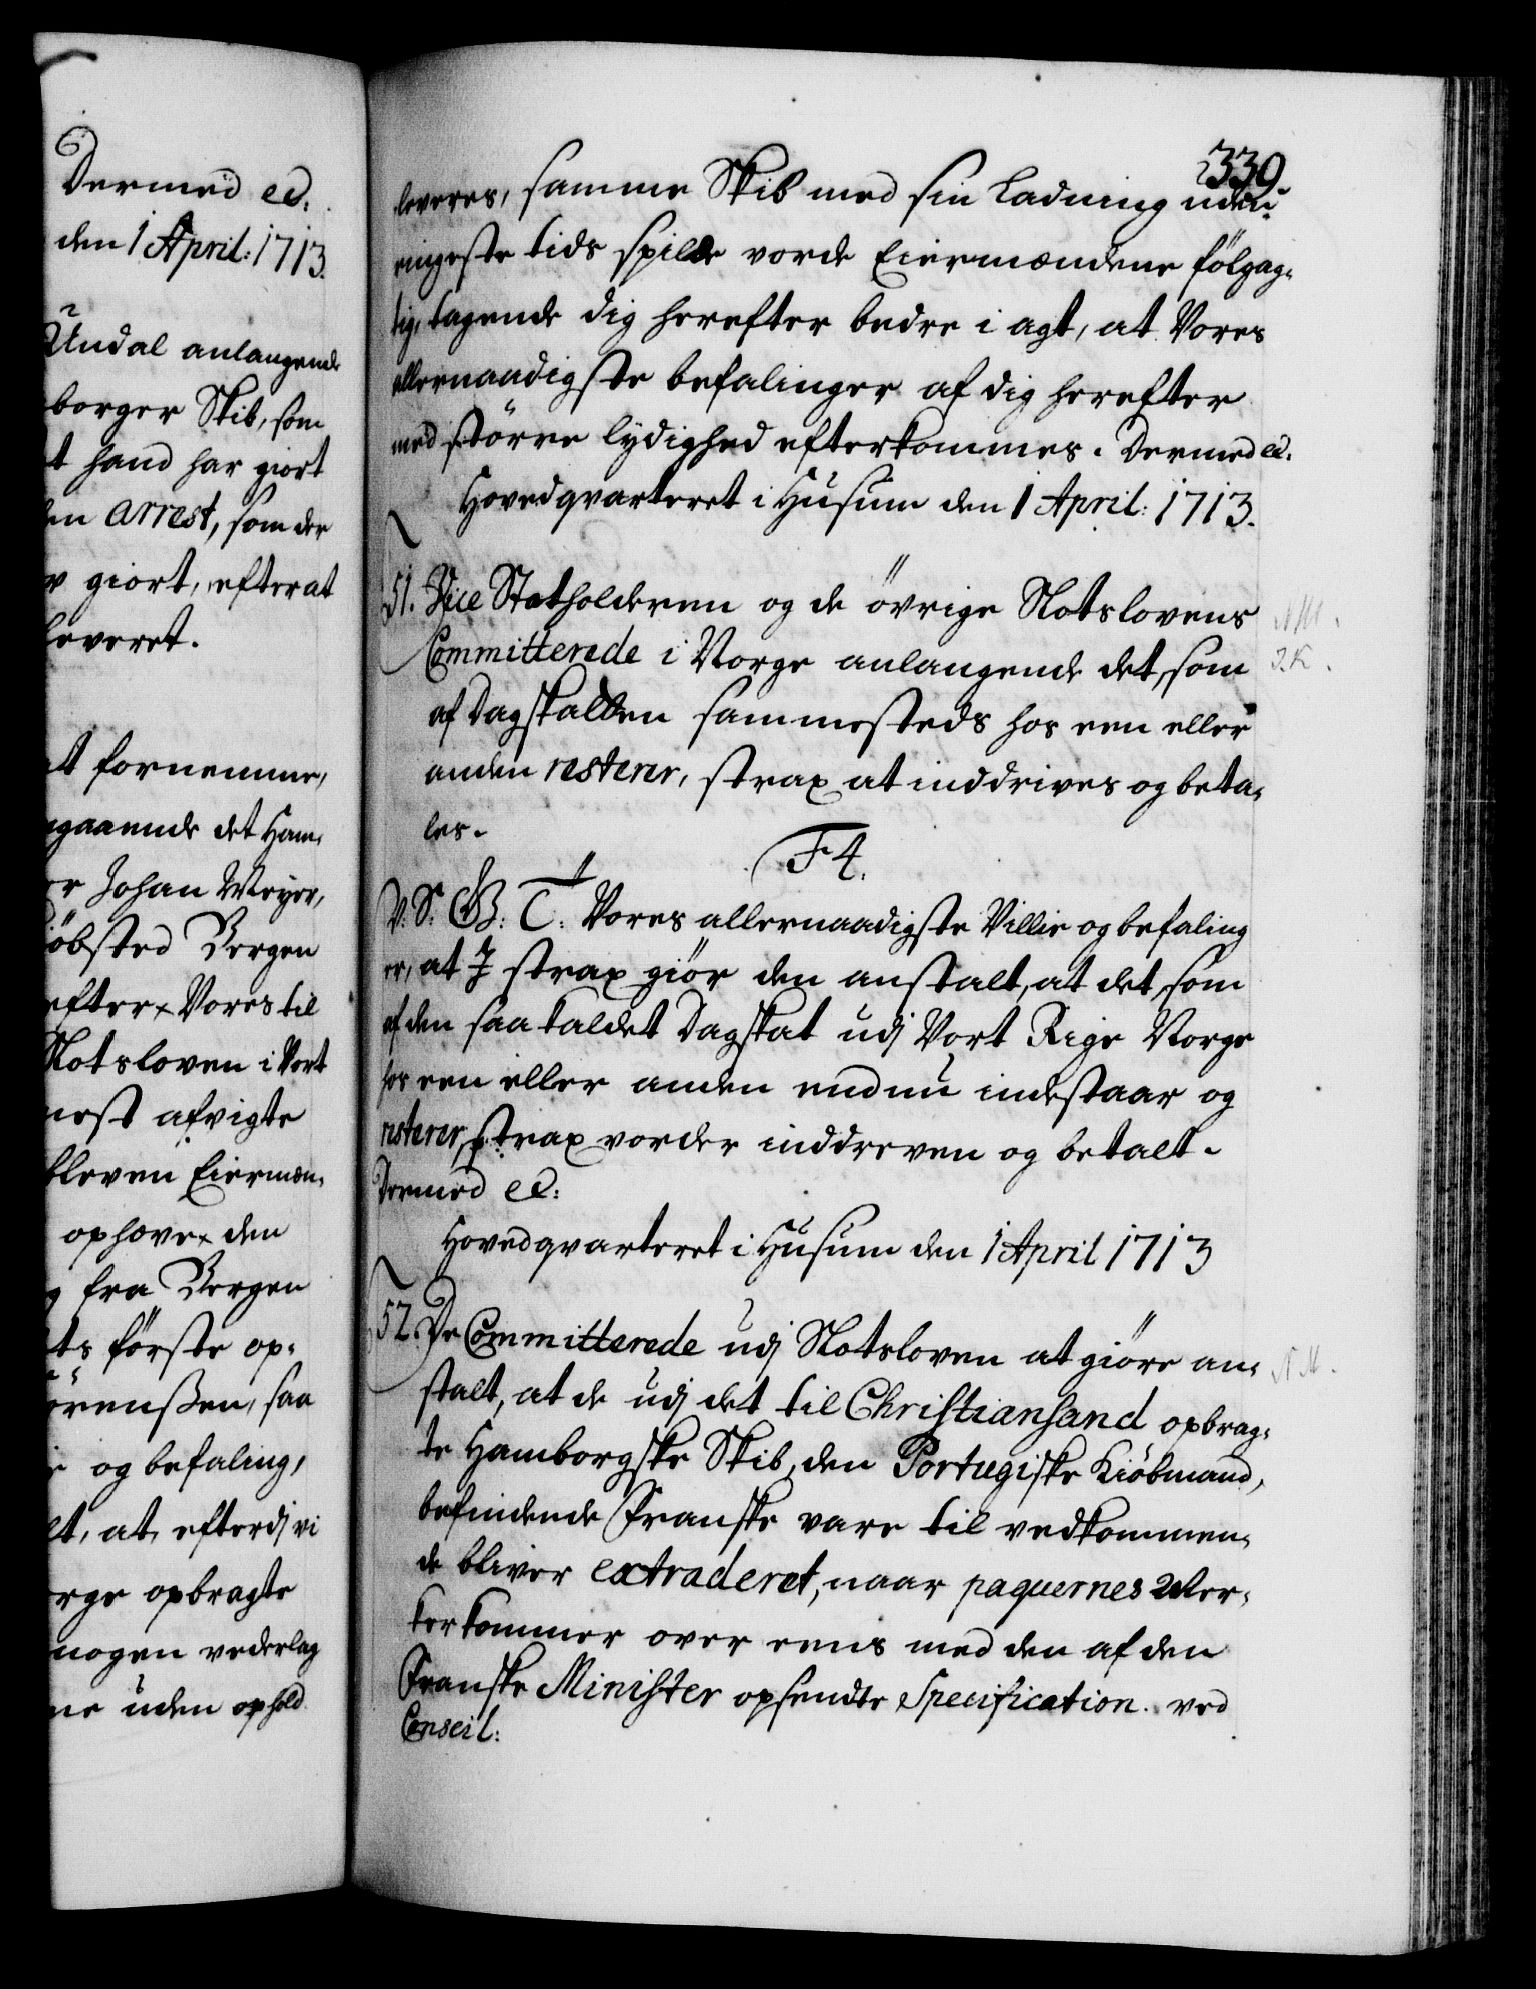 Dermed ec.
den 1 April: 1713.
Undal anlangende
borger Skib, som
t hand har giort
en Arrest, som der
v giort, efter at
leveret.
at fornemme,
gaaende det Ham-
er Johan Meyer,
iöbsted Bergen
efter Vores til
Slotsloven i Vort
nest afvigte
bleven Eiermæn-
ophæve den
g fra Bergen
ts förste op-
örenßen, saa
e og befaling,
et, at, efterdj vi
orge opbragte
nogen vederlag
ne uden ophold
339.
leveres, samme Skib med sin Ladning uden
ringeste tids spilde vorde Eiermændene fölgag-
tig, tagende dig herefter bedre i agt, at Vores
allernaadigste befalinger af dig herefter
med större lydighed efterkommes. Dermed ec.
Hovedqvarteret i Husum den 1 April: 1713.
51. Vice Statholderen og de övrige Slotslovens
Committerede i Norge anlangende det, som
af Dagskatten sammesteds hos een eller
anden resterer, strax at inddrives og beta-
les.
F 4.
V. S. G. T. Vores allernaadigste Villie og befaling
er, at I strax giör den anstalt, at det, som
af den saa kaldet Dagskat udj Vort Rige Norge
hos een eller anden endnu indestaar og
resterer, strax vorder inddreven og betalt.
Dermed ec:
Hovedqvarteret i Husum den 1 April 1713
52. De Committerede udj Slotsloven at giöre an-
stalt, at de udj det til Christiansand opbrag-
te Hamborgske Skib, den Portugiske Kiöbmand,
befindende Franske vare til vedkommen-
de bliver extraderet, naar paquernes Mer-
ker kommer over eens med den af den
Franske Minister opsendte Specification. ved
Conseil:
N M.
J. K.
N M.